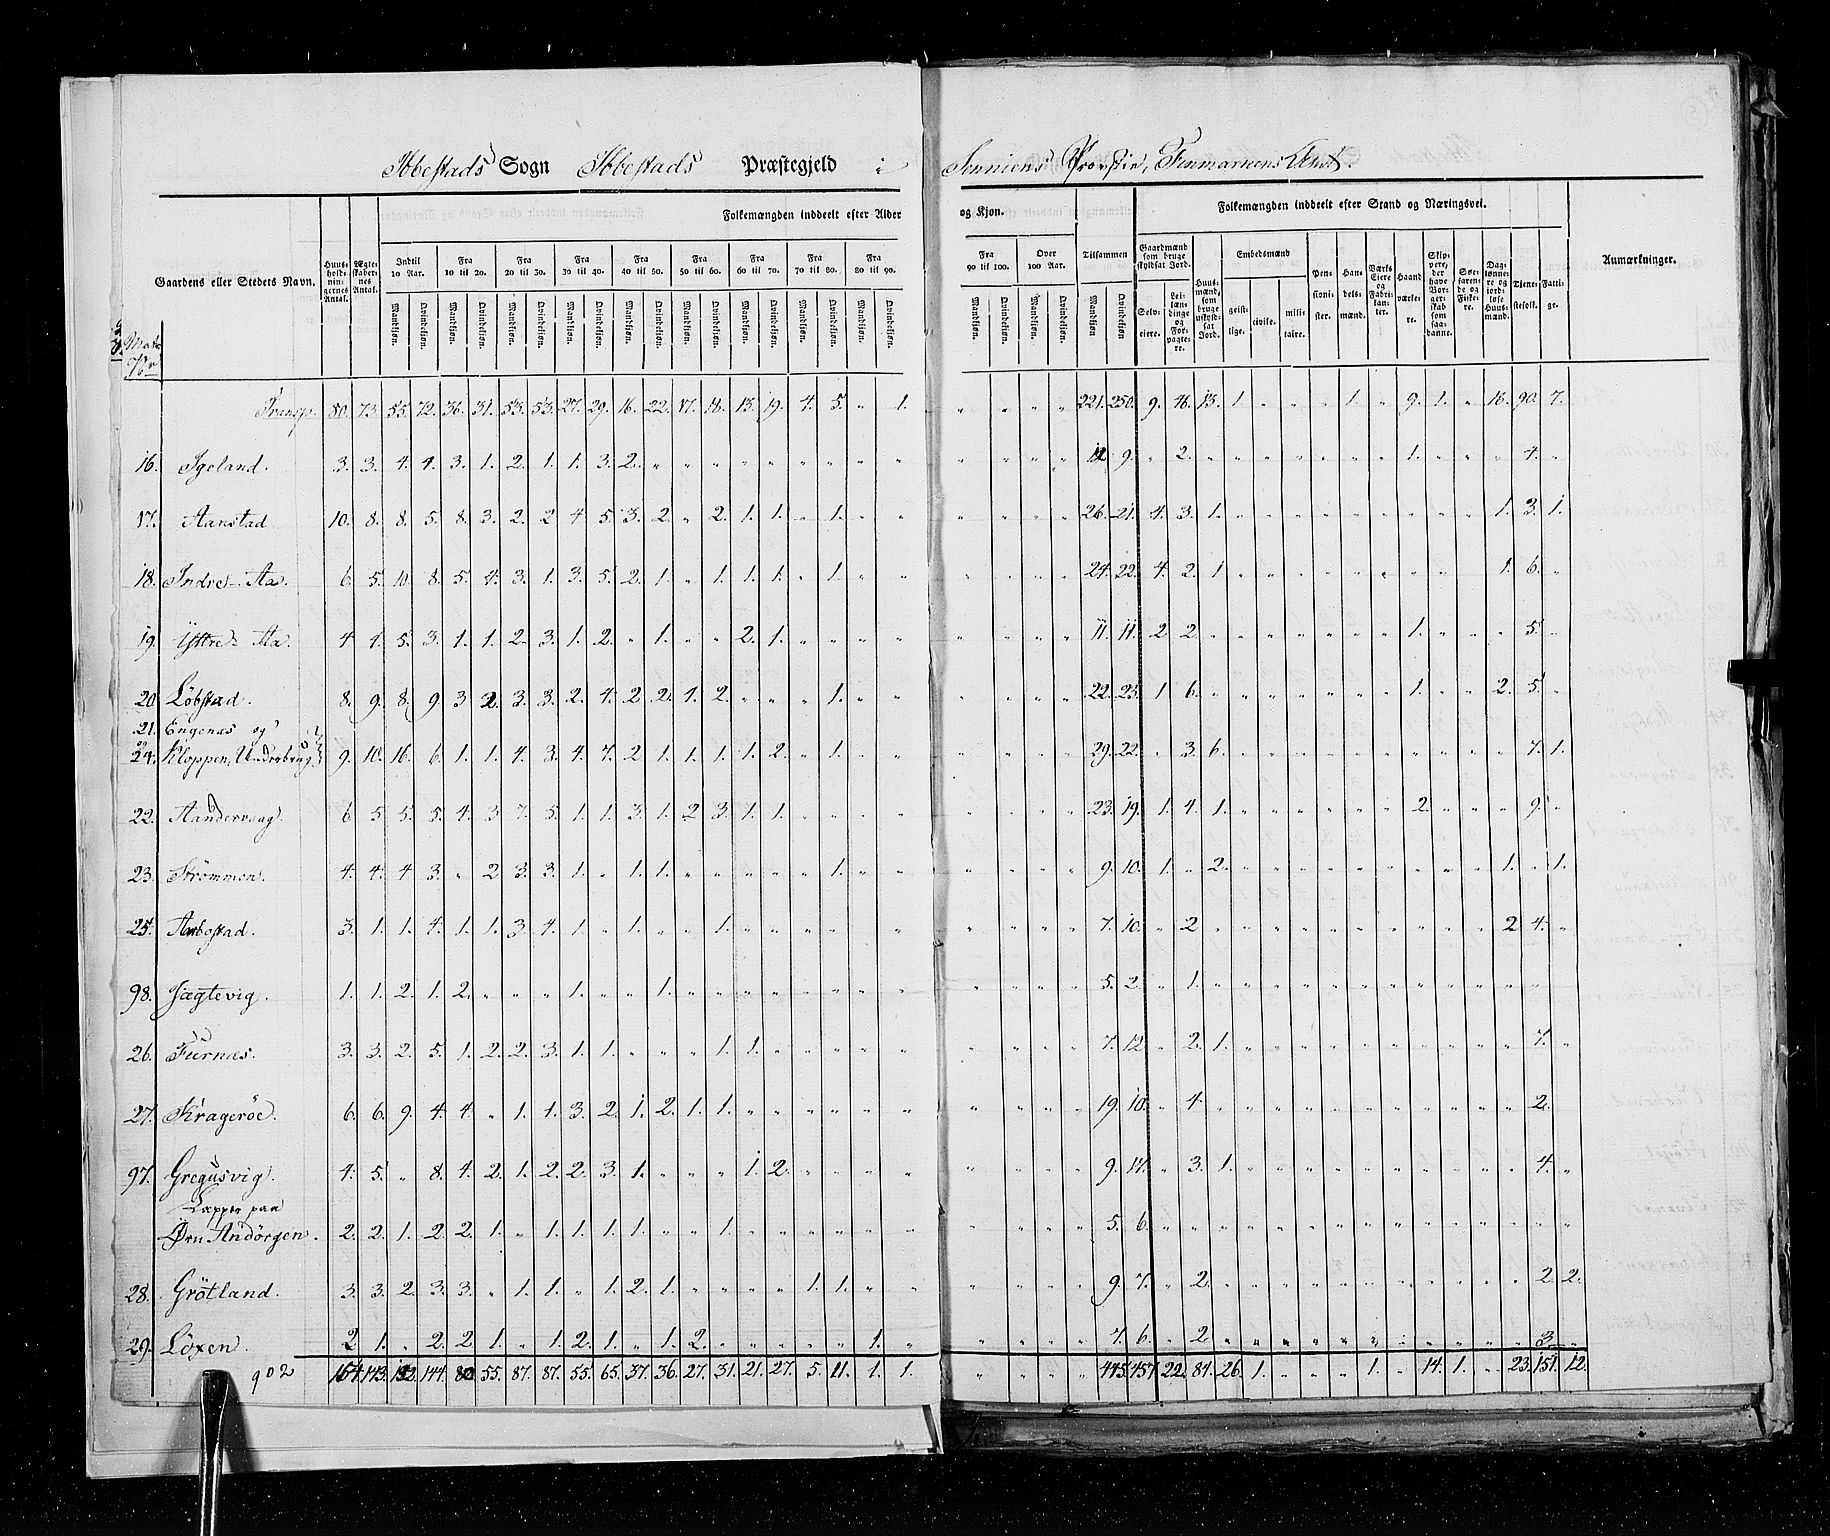 Ibbestads Sogn Ibbestads Præstegjeld i Senniens Provstie, Finmarkens Amt.
Gaardens eller Stedets Navn. Huus-holdnin-gernes Antal. Ægte-skaber-nes Antal. Folkemængden inddeelt efter Alder og Kjøn. Folkemængden inddeelt efter Stand og Næringsvei. Anmærkninger.
Indtil 10 Aar. Fra 10 til 20. Fra 20 til 30. Fra 30 til 40. Fra 40 til 50. Fra 50 til 60. Fra 60 til 70. Fra 70 til 80. Fra 80 til 90. Fra 90 til 100. Over 100 Aar. Tilsammen Gaardmænd som bruge skyldsat Jord. Huus-mænd, som bruge uskyld-sat Jord. Embedsmænd Pen-sioni-ster. Han-dels-mænd. Værks Eiere og Fabri-kan-ter. Haand-værke-re. Skip-pere, der have Bor-ger-skab som saa-danne. Søe-faren-de og Fiske-re. Dag-lønne-re og jord-løse Huus-mænd. Tjene-stefolk. Fatti-ge.
Mandkjøn. Qvindekjøn. Selv-eiere. Lei-læn-dinge og For-pagte-re. geist-lige. civile. mili-taire.
Transp. 80. 73. 55. 72. 36. 31. 53. 53. 27. 29. 16. 22. 17. 18. 13. 19. 4. 5. „ 1. „ „ „ „ 221. 250. 9. 46. 13. 1 „ „ „ 1. „ 9. 1. „ 16. 90. 7.
16. Igeland. 3. 3. 4. 4. 3. 1. 2. 1. 1. 3. 2. „ „ „ „ „ „ „ „ „ „ „ „ „ 12 9. „ 2. „ „ „ „ „ „ „ 1. „ „ „ 4. „
17. Aanstad 10. 8. 8. 5. 8. 3. 2. 2 4. 5. 3. 2. „ 2. 1. 1. „ 1. „ „ „ „ „ „ 26. 21. 4. 3. 1. „ „ „ „ „ „ „ „ „ 1. 3. 1.
18. Indre Aa. 6. 5. 10. 8. 5. 4. 3. 1. 3. 5. 2. 1. „ 1. 1. 1. „ 1. „ „ „ „ „ „ 24. 22. 4. 2. 1 „ „ „ „ „ „ „ „ „ 1. 6. „
19. Yttre Aa. 4. 4. 5. 3. 1. 1. 2. 3. 1. 2. „ 1. „ „ 2. 1. „ „ „ „ „ „ „ „ 11. 11. 2 2. „ „ „ „ „ „ „ 1. „ „ „ 5. „
20. Löbstad. 8. 9. 8. 9. 3 2. 3. 3. 2. 4. 2. 2. 1. 2. „ „ „ 1. „ „ „ „ „ „ 22. 23. 1 6. „ „ „ „ „ „ „ 1. „ „ 2. 5. „
21. Engenæs og
24. Kloppen, Underbrug 9. 10. 16. 6. 1. 1. 4. 3. 4. 7. 2. 1. 1. 1. 1. 2. „ 1. „ „ „ „ „ „ 29. 22. „ 3. 6. „ „ „ „ „ „ „ „ „ „ 7. 1.
22. Aandervaag. 6. 5 5. 5. 4. 3. 7. 5. 1. 1. 3. 1. 2 3. 1. 1. „ „ „ „ „ „ „ „ 23. 19. 1. 4. 1. „ „ „ „ „ „ 2. „ „ „ 9. „
23. Strömmen. 4. 4. 4 3. „ 2 3. 3. 1. „ 1. 1. „ „ „ „ „ 1. „ „ „ „ „ „ 9. 10. 1. „ 2. „ „ „ „ „ „ „ „ „ 1. „ 1.
25. Arbostad. 3. 1. 1. 4. 1. 1. 3 4. 1. „ 1. „ „ 1. „ „ „ „ „ „ „ „ „ „ 7. 10. „ 2 „ „ „ „ „ „ „ „ „ „ 2 4. „
98. Jægtevig. 1. 1. 2. 1. 2. „ „ „ 1. „ „ 1. „ „ „ „ „ „ „ „ „ „ „ „ 5. 2. „ 1. „ „ „ „ „ „ „ „ „ „ „ „ „
26. Furnæs. 3. 3. 2. 5. 1. 2. 2. 3. 1. 1. „ „ „ 1. 1. „ „ „ „ „ „ „ „ „ 7. 12. „ 2. 1. „ „ „ „ „ „ „ „ „ „ 7. „
27. Kragerøe. 6. 6. 9. 4. 4. „ 1. 1. 3. 2. 1. 2. 1. 1. „ „ „ „ „ „ „ „ „ „ 19. 10. „ 4. „ „ „ „ „ „ „ „ „ „ „ 2. „
97. Gregusvig. 4. 5. „ 8. 4. 2. 1. 2. 2. 3. 1. „ „ „ 1. 2. „ „ „ „ „ „ „ „ 9. 17. „ 3. 1. „ „ „ „ „ „ „ „ „ „ 4. „
Lapper paa
Øen Andörgen. 2. 2. 1. 2. 2. 1. „ 1. 1. 1. 1. „ „ 1. „ „ „ „ „ „ „ „ „ „ 5. 6. „ „ „ „ „ „ „ „ „ „ „ „ „ „ „
28. Grötland. 3. 3. 2. 3. 3. „ 1. 1. „ 1. 2. 1. „ „ „ „ 1. 1. „ „ „ „ „ „ 9. 7. „ 2. „ „ „ „ „ „ „ „ „ „ „ 2. 2.
29. Löxen. 2 1. „ 2. 2. 1. „ 1. 2. 1. „ 1. 2. „ „ „ „ „ 1. „ „ „ „ „ 7. 6. „ 2. „ „ „ „ „ „ „ „ „ „ „ 3. „
902 154. 143. 132. 144. 80. 55. 87. 87. 55. 65. 37. 36. 27. 31. 21. 27. 5. 11. 1. 1. „ „ „ „ 445. 457. 22. 84. 26. 1. „ „ „ 1. „ 14. 1. „ 23. 151. 12.